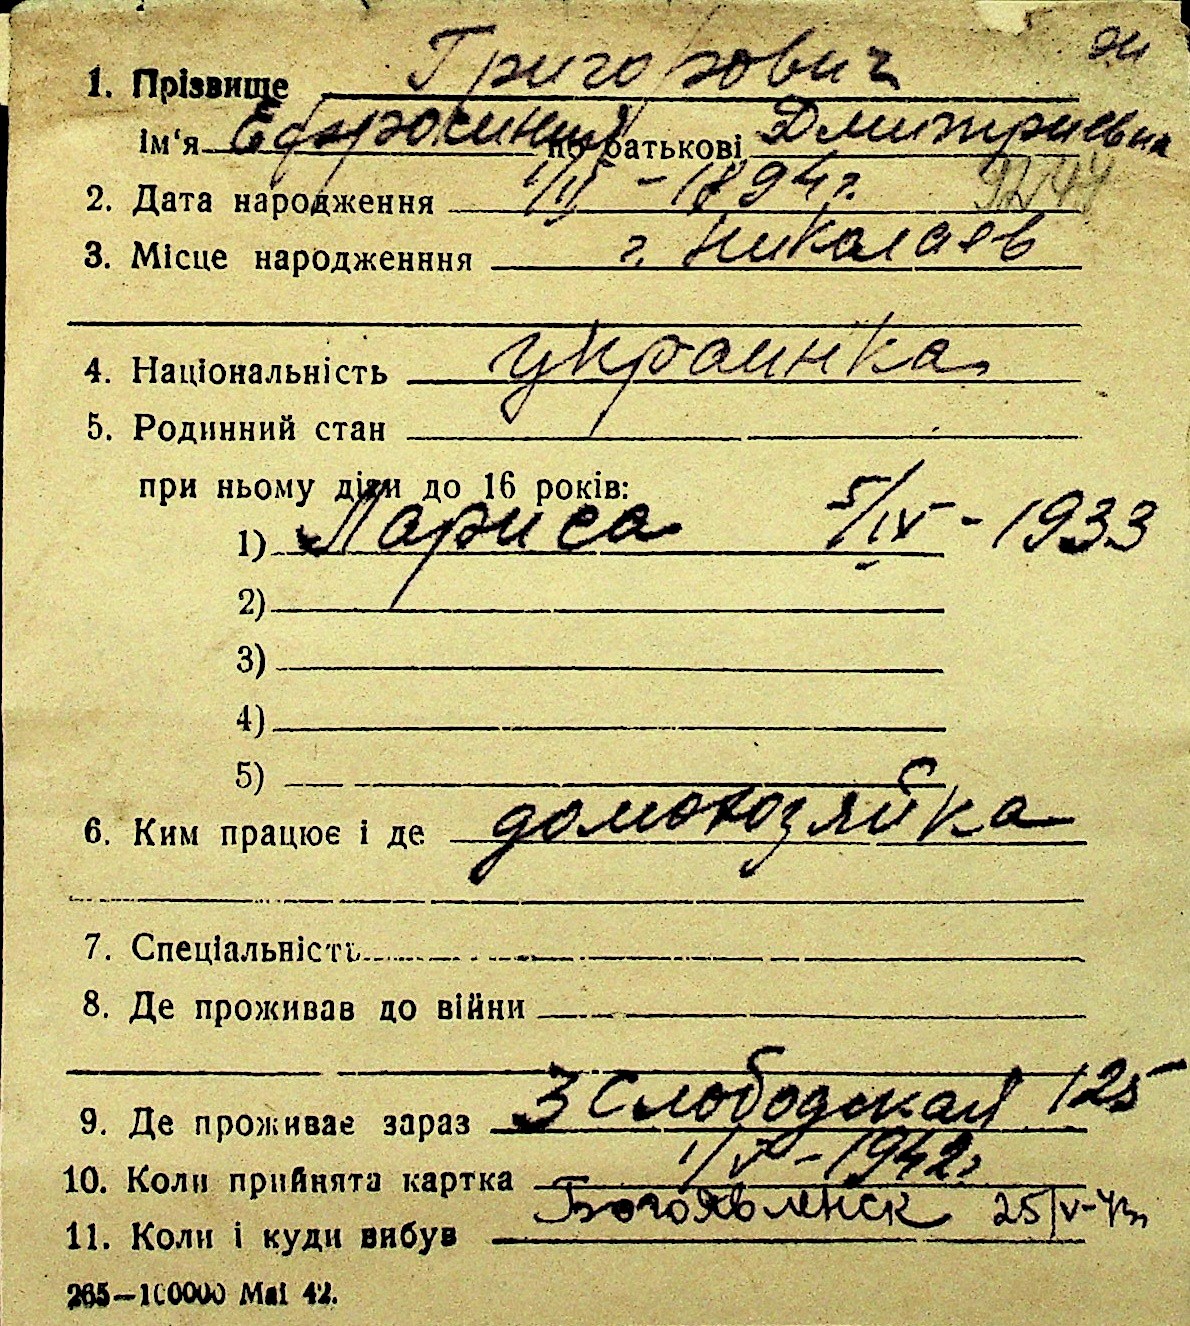 1. Прізвище Григорович
ім‘я Ефросиния по батькові Дмитриевна
2. Дата народження 1/IV - 1894 г.
3. Місце народженння г. Николаев
4. Національність украинка
5. Родинний стан
при ньому діти до 16 років:
1) Лариса 5/IX - 1933
2)
3)
4)
5)
6. Ким працює і де домохозяйка
7. Спеціальність
8. Де проживав до війни
9. Де проживає зараз 3 Слободская 125
10. Коли прийнята картка 1/V - 1942 г
11. Коли і куди вибув Богоявленск 25/V-43
265—100000 Маі 42.